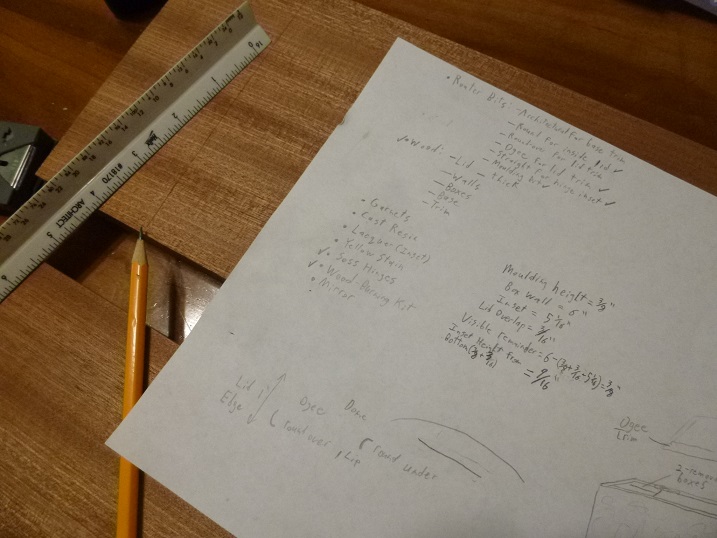 • Router Bits: - Architectural for base trim
- Round for inside lid ✓
- Roundover for lid trim
- Ogee for lid trim ✓
- Straight for hinge inset ✓
- Moulding bit ✓
✓ Wood: - Lid - thick
- Walls
- Boxes
- Base
- Trim
• Garnets
• Cast Resin
• (Inset)
• Yellow Stain
✓ • Soss Hinges
✓ • Wood Burning Kit
• Mirror
Moulding height = 3/8"
Box wall = 6"
Inset = 5 1/16"
Lid Overlap = 3/16"
Visible remainder = 6-
Inset Height from
Bottom
= 9/16"
Lid
Edge
Ogee
Roundover
Lip
Round under
Ogee
Trim
2-remov
boxes
ARCHITECT
#18170